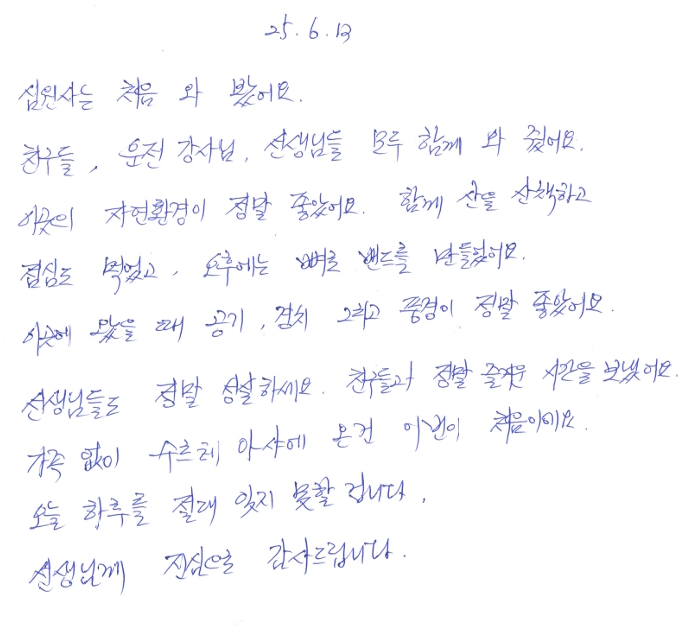 25. 6. 13
심원사는 처음 와 봤어요.
친구들, 운전 강사님, 선생님들 모두 함께 와 줬어요.
이곳의 자연환경이 정말 좋았어요. 함께 산을 산책하고
점심도 먹었고, 오후에는 뼈로 밴드를 만들었어요.
이곳에 왔을 때 공기, 경치 그리고 풍경이 정말 좋았어요.
선생님들도 정말 성실하세요. 친구들과 정말 즐거운 시간을 보냈어요.
가족 없이 수르테 아샤에 온건 이번이 처음이에요.
오늘 하루를 절대 잊지 못할 겁니다.
선생님께 진심으로 감사드립니다.